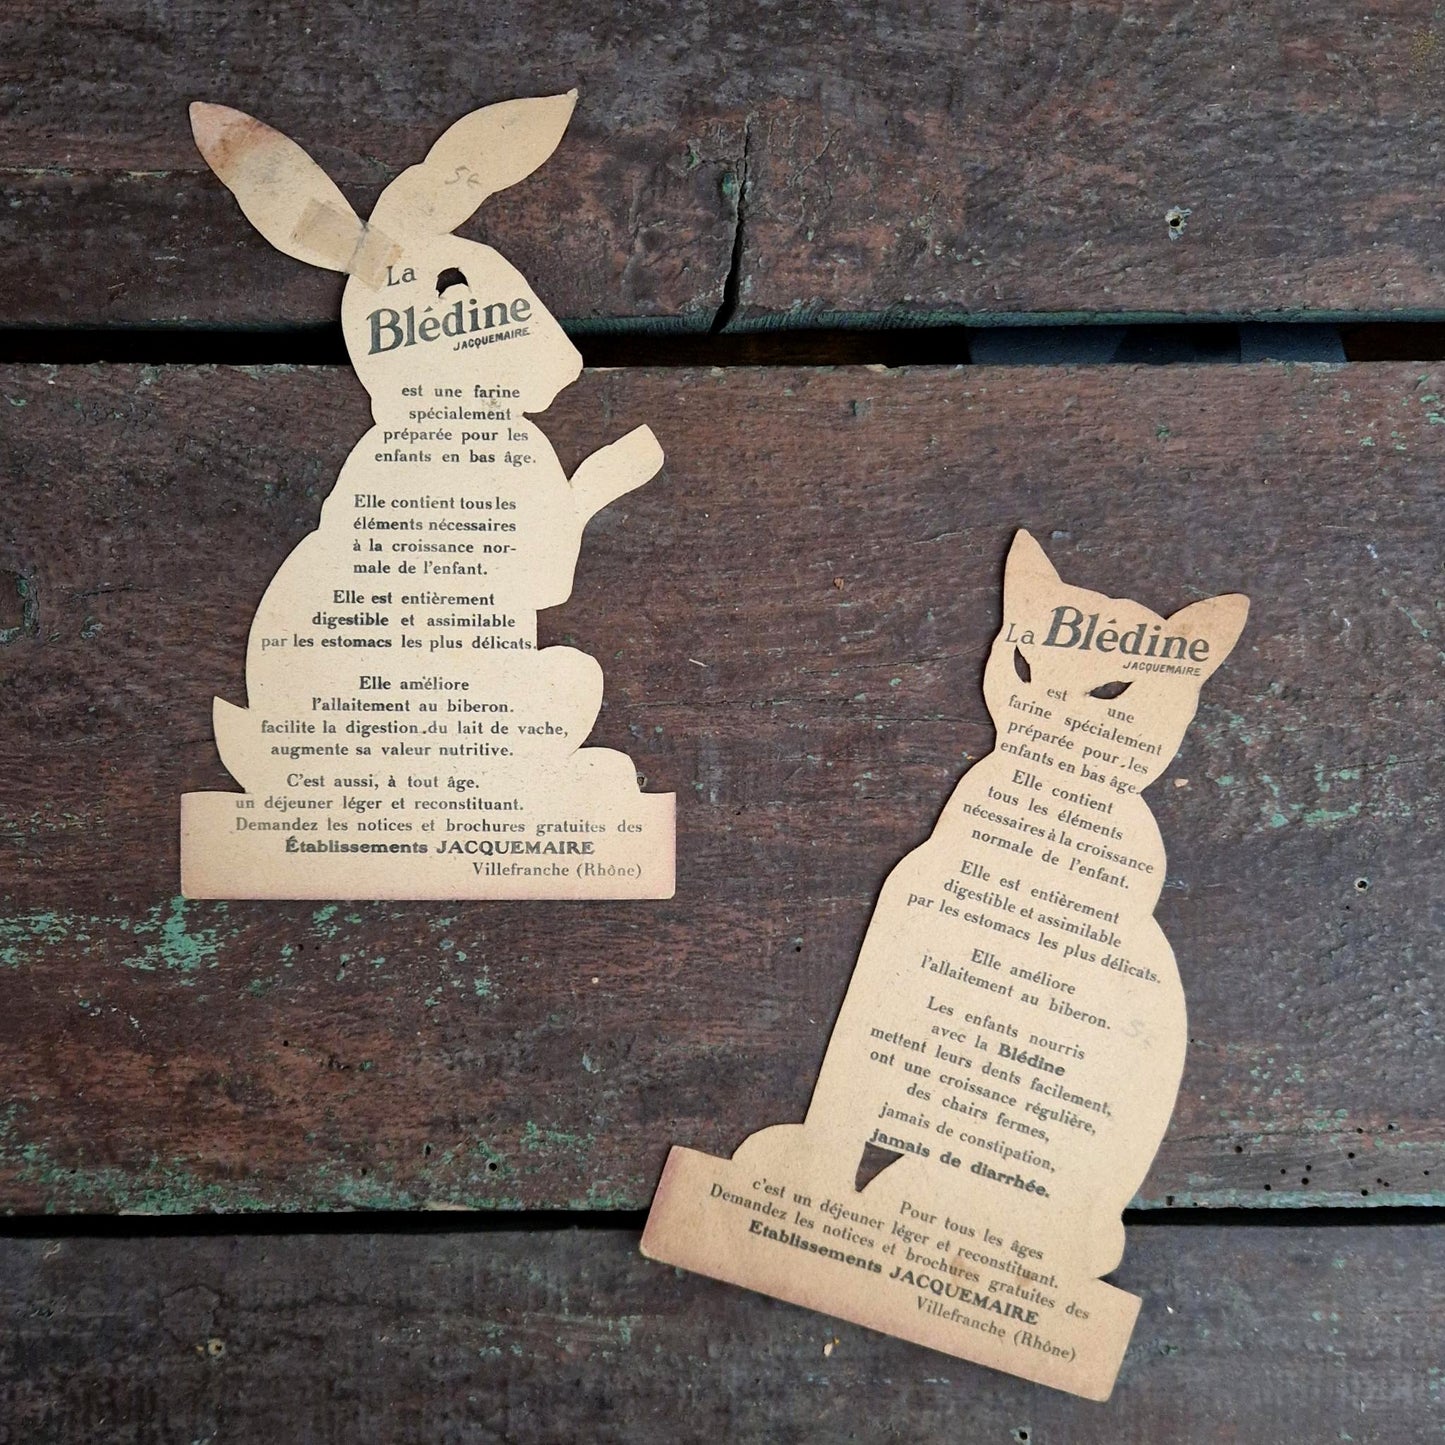 La
Blédine
JACQUEMAIRE
est une farine
spécialement
préparée pour les
enfants en bas âge.
Elle contient tous les
éléments nécessaires
à la croissance nor-
male de l'enfant.
Elle est entièrement
digestible et assimilable
par les estomacs les plus délicats.
Elle améliore
l'allaitement au biberon.
facilite la digestion du lait de vache,
augmente sa valeur nutritive.
C'est aussi, à tout âge.
un déjeuner léger et reconstituant.
Demandez les notices et brochures gratuites des
Établissements JACQUEMAIRE
Villefranche (Rhône)
La Blédine
JACQUEMAIRE
est une
farine spécialement
préparée pour les
enfants en bas âge.
Elle contient
tous les éléments
nécessaires à la croissance
normale de l'enfant.
Elle est entièrement
digestible et assimilable
par les estomacs les plus délicats.
Elle améliore
l'allaitement au biberon.
Les enfants nourris
avec la Blédine
mettent leurs dents facilement,
ont une croissance régulière,
des chairs fermes,
jamais de constipation,
jamais de diarrhée.
Pour tous les âges
c'est un déjeuner léger et reconstituant.
Demandez les notices et brochures gratuites des
Etablissements JACQUEMAIRE
Villefranche (Rhône)